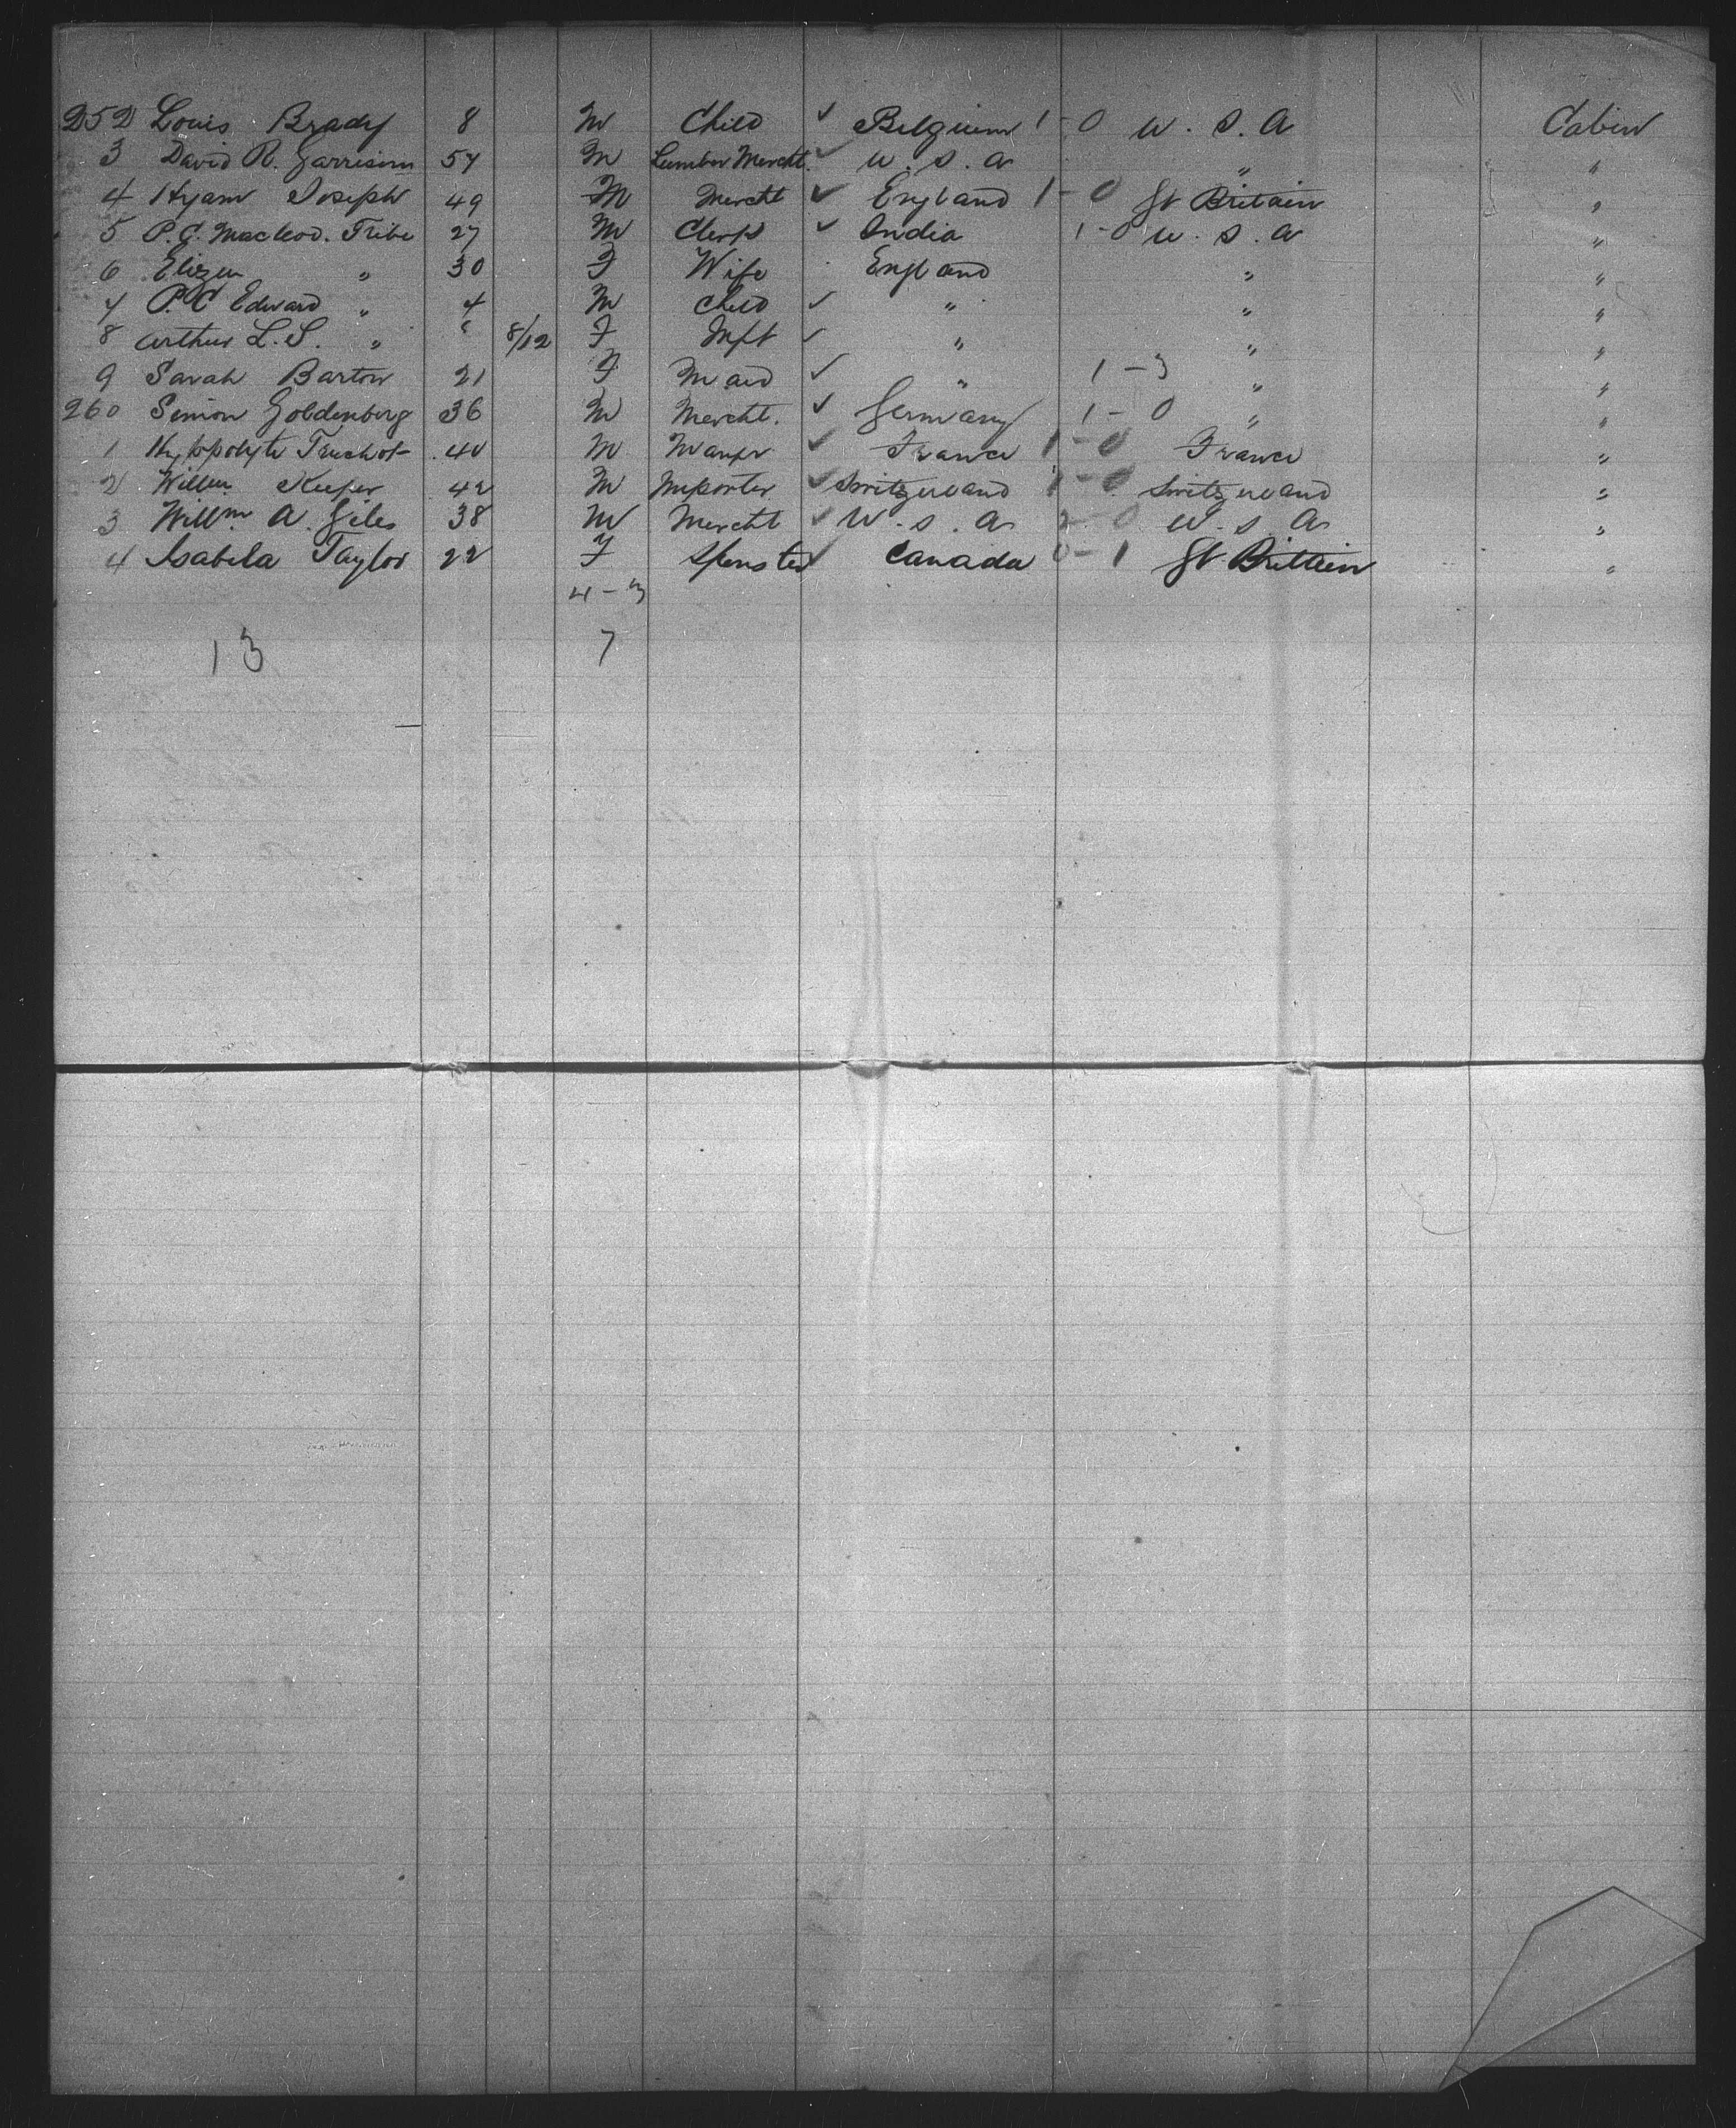 252 Louis Brady 8 M Child ✓ Belgium 1-0 U.S.A Cabin
3 David R. Garrison 57 M Lumber Mercht. ✓ U.S.A " "
4 Hyam Joseph 49 M Mercht ✓ England 1-0 Gt Britain "
5 P.C. Macleod. Tribe 27 M Clerk ✓ India 1-0 U.S.A "
6 Eliza " 30 F Wife England " "
7 P.C Edward " 4 M Child ✓ " " "
8 Arthur L.S. " 8/12 F Inft ✓ " " "
9 Sarah Barton 21 F Maid ✓ " 1-3 " "
260 Simon Goldenberg 36 M Mercht. ✓ Germany 1-0 " "
1 Hyppolyte Truchot 40 M Manfr ✓ France 1-0 France "
2 Willm Keefer 42 M Importer ✓ Switzerland 1-0 Switzerland "
3 Willm A. Giles 38 M Mercht ✓ U.S.A 2-0 U.S.A "
4 Isabela Taylor 22 F Spinster ✓ Canada 0-1 Gt Brittain "
4-3
13 7